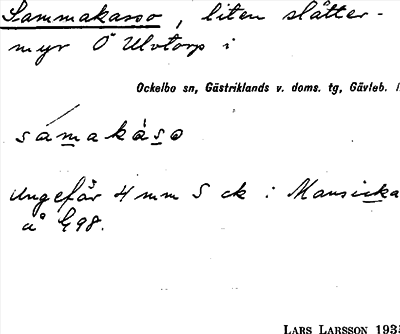 Sammakasso, liten slåtter-
myr Ö Ulvtorp i
Ockelbo sn, Gästriklands v. doms. tg, Gävleb. l
sámakàso
Ungefär 4 mm S ck i Mansicka
å G98.
LARS LARSSON 1935